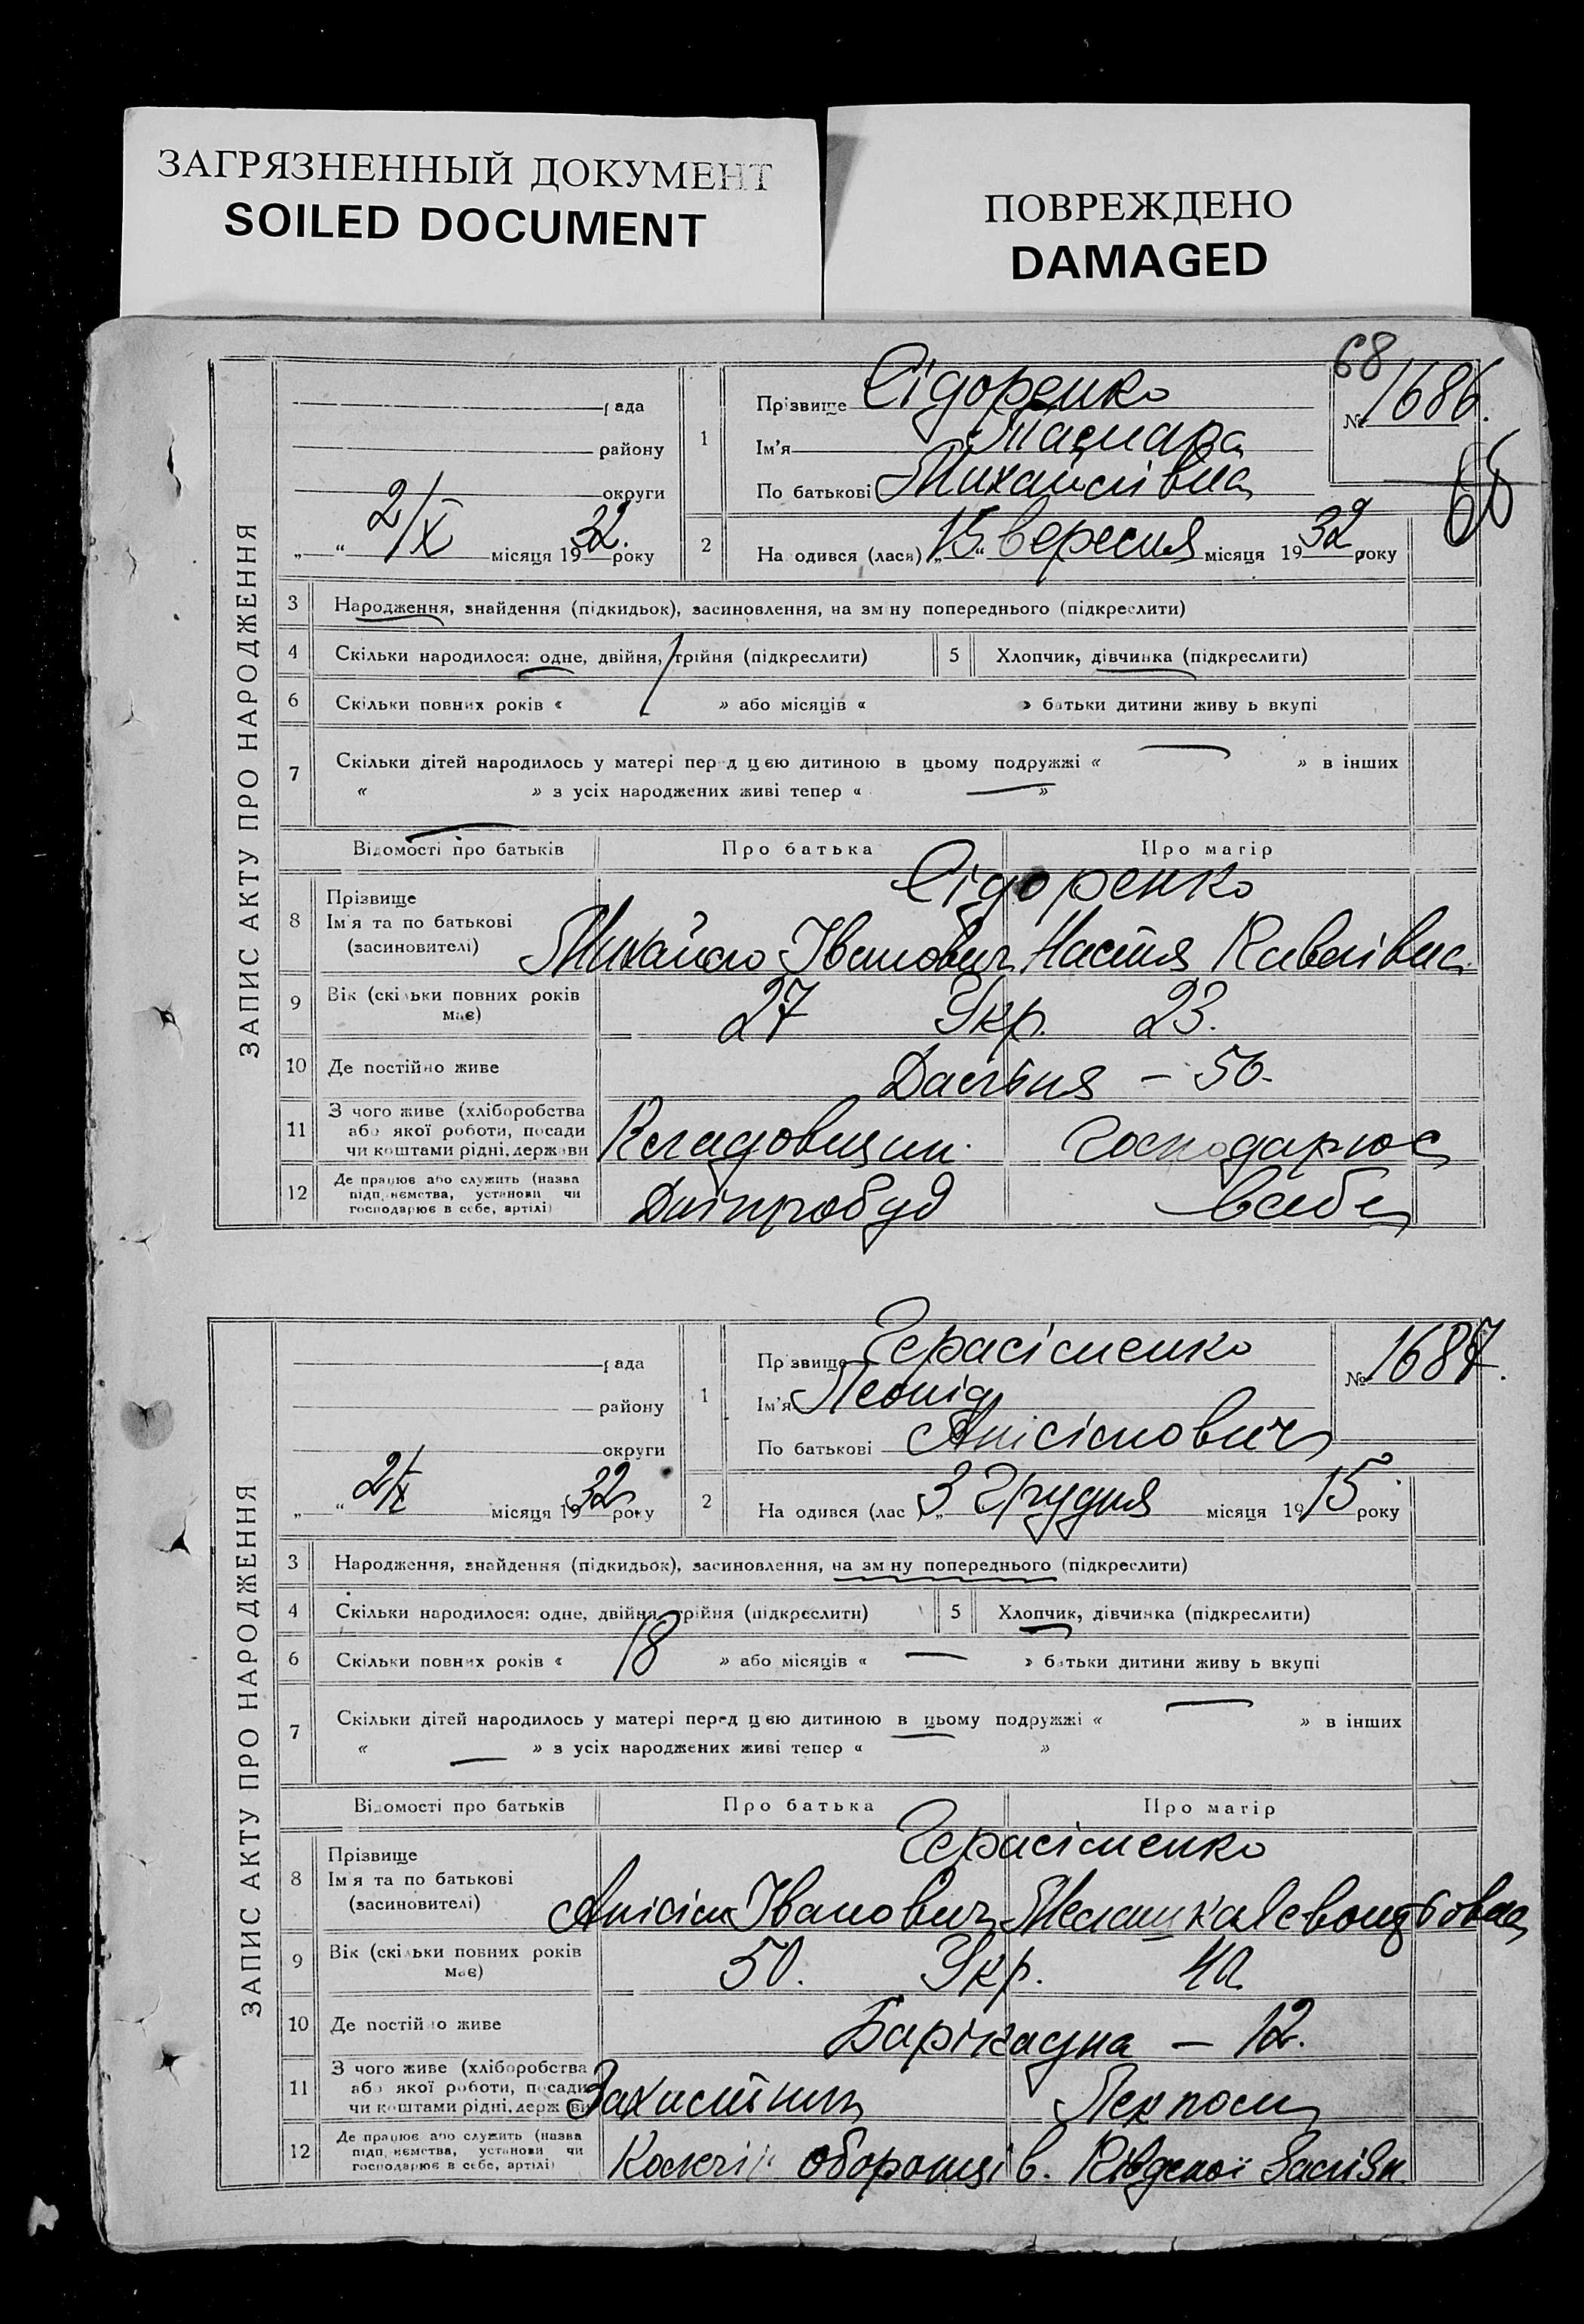 ЗАГРЯЗНЕННЫЙ ДОКУМЕНТ
SOILED DOCUMENT
ПОВРЕЖДЕНО
DAMAGED
68
68
ЗАПИС АКТУ ПРО НАРОДЖЕННЯ
рада
району
округи
„ “ 2/X місяця 1932. року
1 Прізвище Сідоренко
Ім'я Тамара
По батькові Михайлівна
№ 1686.
2 На одився (лася) „15“ вересня місяця 1932 року
3 Народження, знайдення (підкидьок), засиновлення, на зм ну попереднього (підкреслити)
4 Скільки народилося: одне, двійня, трійня (підкреслити) 5 Хлопчик, дівчинка (підкреслити)
6 Скільки повних років « » або місяців « » батьки дитини живу ь вкупі
7 Скільки дітей народилось у матері перед цею дитиною в цьому подружжі « — » в інших
« » з усіх народжених живі тепер « — »
Відомості про батьків Про батька Про матір
8 Прізвище Сідоренко
Ім'я та по батькові
(засновителі) Михайло Іванович Настя
9 Вік (скільки повних років має) 27 Укр. 23.
10 Де постійно живе — 50.
11 З чого живе (хліборобства
або якої роботи, посади
чи коштами рідні, держави Кладовщик господарює
12 Де працює або служить (назва
підп иємства, установи чи
господарює в себе, артілі) Дніпробуд в себе
ЗАПИС АКТУ ПРО НАРОДЖЕННЯ
рада
району
округи
„ “ 2/X місяця 1932 року
1 Пр звище Герасіменко
Ім'я Леонід
По батькові Анісімович
№ 1687.
2 На одився (лас ) „3 Грудня місяця 1915 року
3 Народження, знайдення (підкидьок), засиновлення, на зм ну попереднього (підкреслити)
4 Скільки народилося: одне, двійня, трійня (підкреслити) 5 Хлопчик, дівчинка (підкреслити)
6 Скільки повних років « 18 » або місяців « — » батьки дитини живу ь вкупі
7 Скільки дітей народилось у матері перед цею дитиною в цьому подружжі « — » в інших
« — » з усіх народжених живі тепер « »
Відомості про батьків Про батька Про матір
8 Прізвище Герасіменко
Ім'я та по батькові
(засиновителі) Анісім Іванович Мелашка
9 Вік (скільки повних років має) 50. Укр.
10 Де постій о живе Барікадна — 12.
11 З чого живе (хліборобства
або якої роботи, посади
чи коштами рідні, держ ви Захистник Лекпом
12 Де працює або служить (назва
підп иємства, установи чи
господарює в себе, артілі) Колегії оборонців.